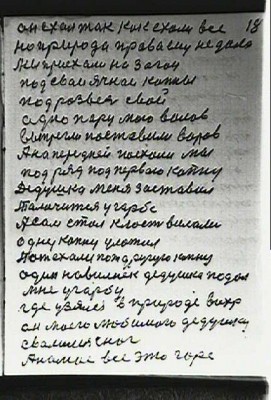 он ехал так как ехали все 18
но природа права ему не дала
мы приехали на загон
под свал ячной копны
под розвал свой
одно пару мого валов
быстро поставили варов
Ана передней поехали мы
под ряд под первою копну
Дедушка меня заставил
Талочится угарбе
А сам стал класт вилами
одну копну уложил
Поехали под другую копну
один навильнек дедушка подал
мне угарбу
где узялся в природе вихр
он моего любимого дедушку
свалил с ног
Ана мае все это горе